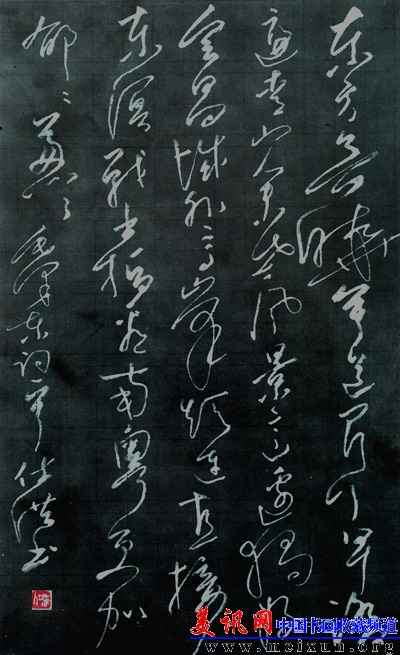 东方欲晓莫道君行早踏
遍青山人未老风景这边独好
会昌城外高峰颠连直接
东溟战士指看南粤更加
郁〻葱〻毛泽东词 书
美讯网 中国书画收藏频道
www.meixun.org